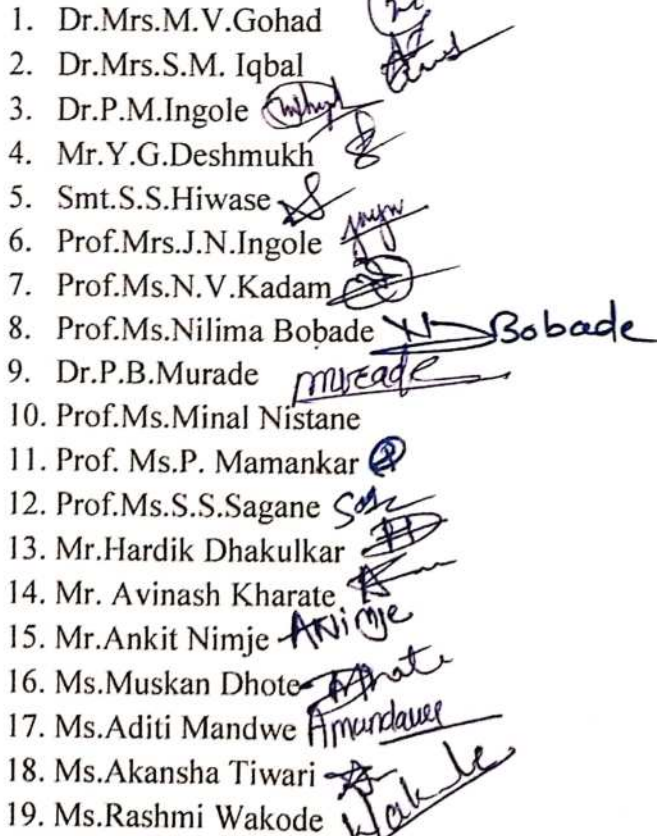 1. Dr.Mrs.M.V.Gohad
2. Dr.Mrs.S.M. Iqbal
3. Dr.P.M.Ingole
4. Mr.Y.G.Deshmukh
5. Smt.S.S.Hiwase
6. Prof.Mrs.J.N.Ingole
7. Prof.Ms.N.V.Kadam
8. Prof.Ms.Nilima Bobade Bobade
9. Dr.P.B.Murade
10. Prof.Ms.Minal Nistane
11. Prof. Ms.P. Mamankar
12. Prof.Ms.S.S.Sagane
13. Mr.Hardik Dhakulkar
14. Mr. Avinash Kharate
15. Mr.Ankit Nimje ANimje
16. Ms.Muskan Dhote
17. Ms.Aditi Mandwe
18. Ms.Akansha Tiwari
19. Ms.Rashmi Wakode